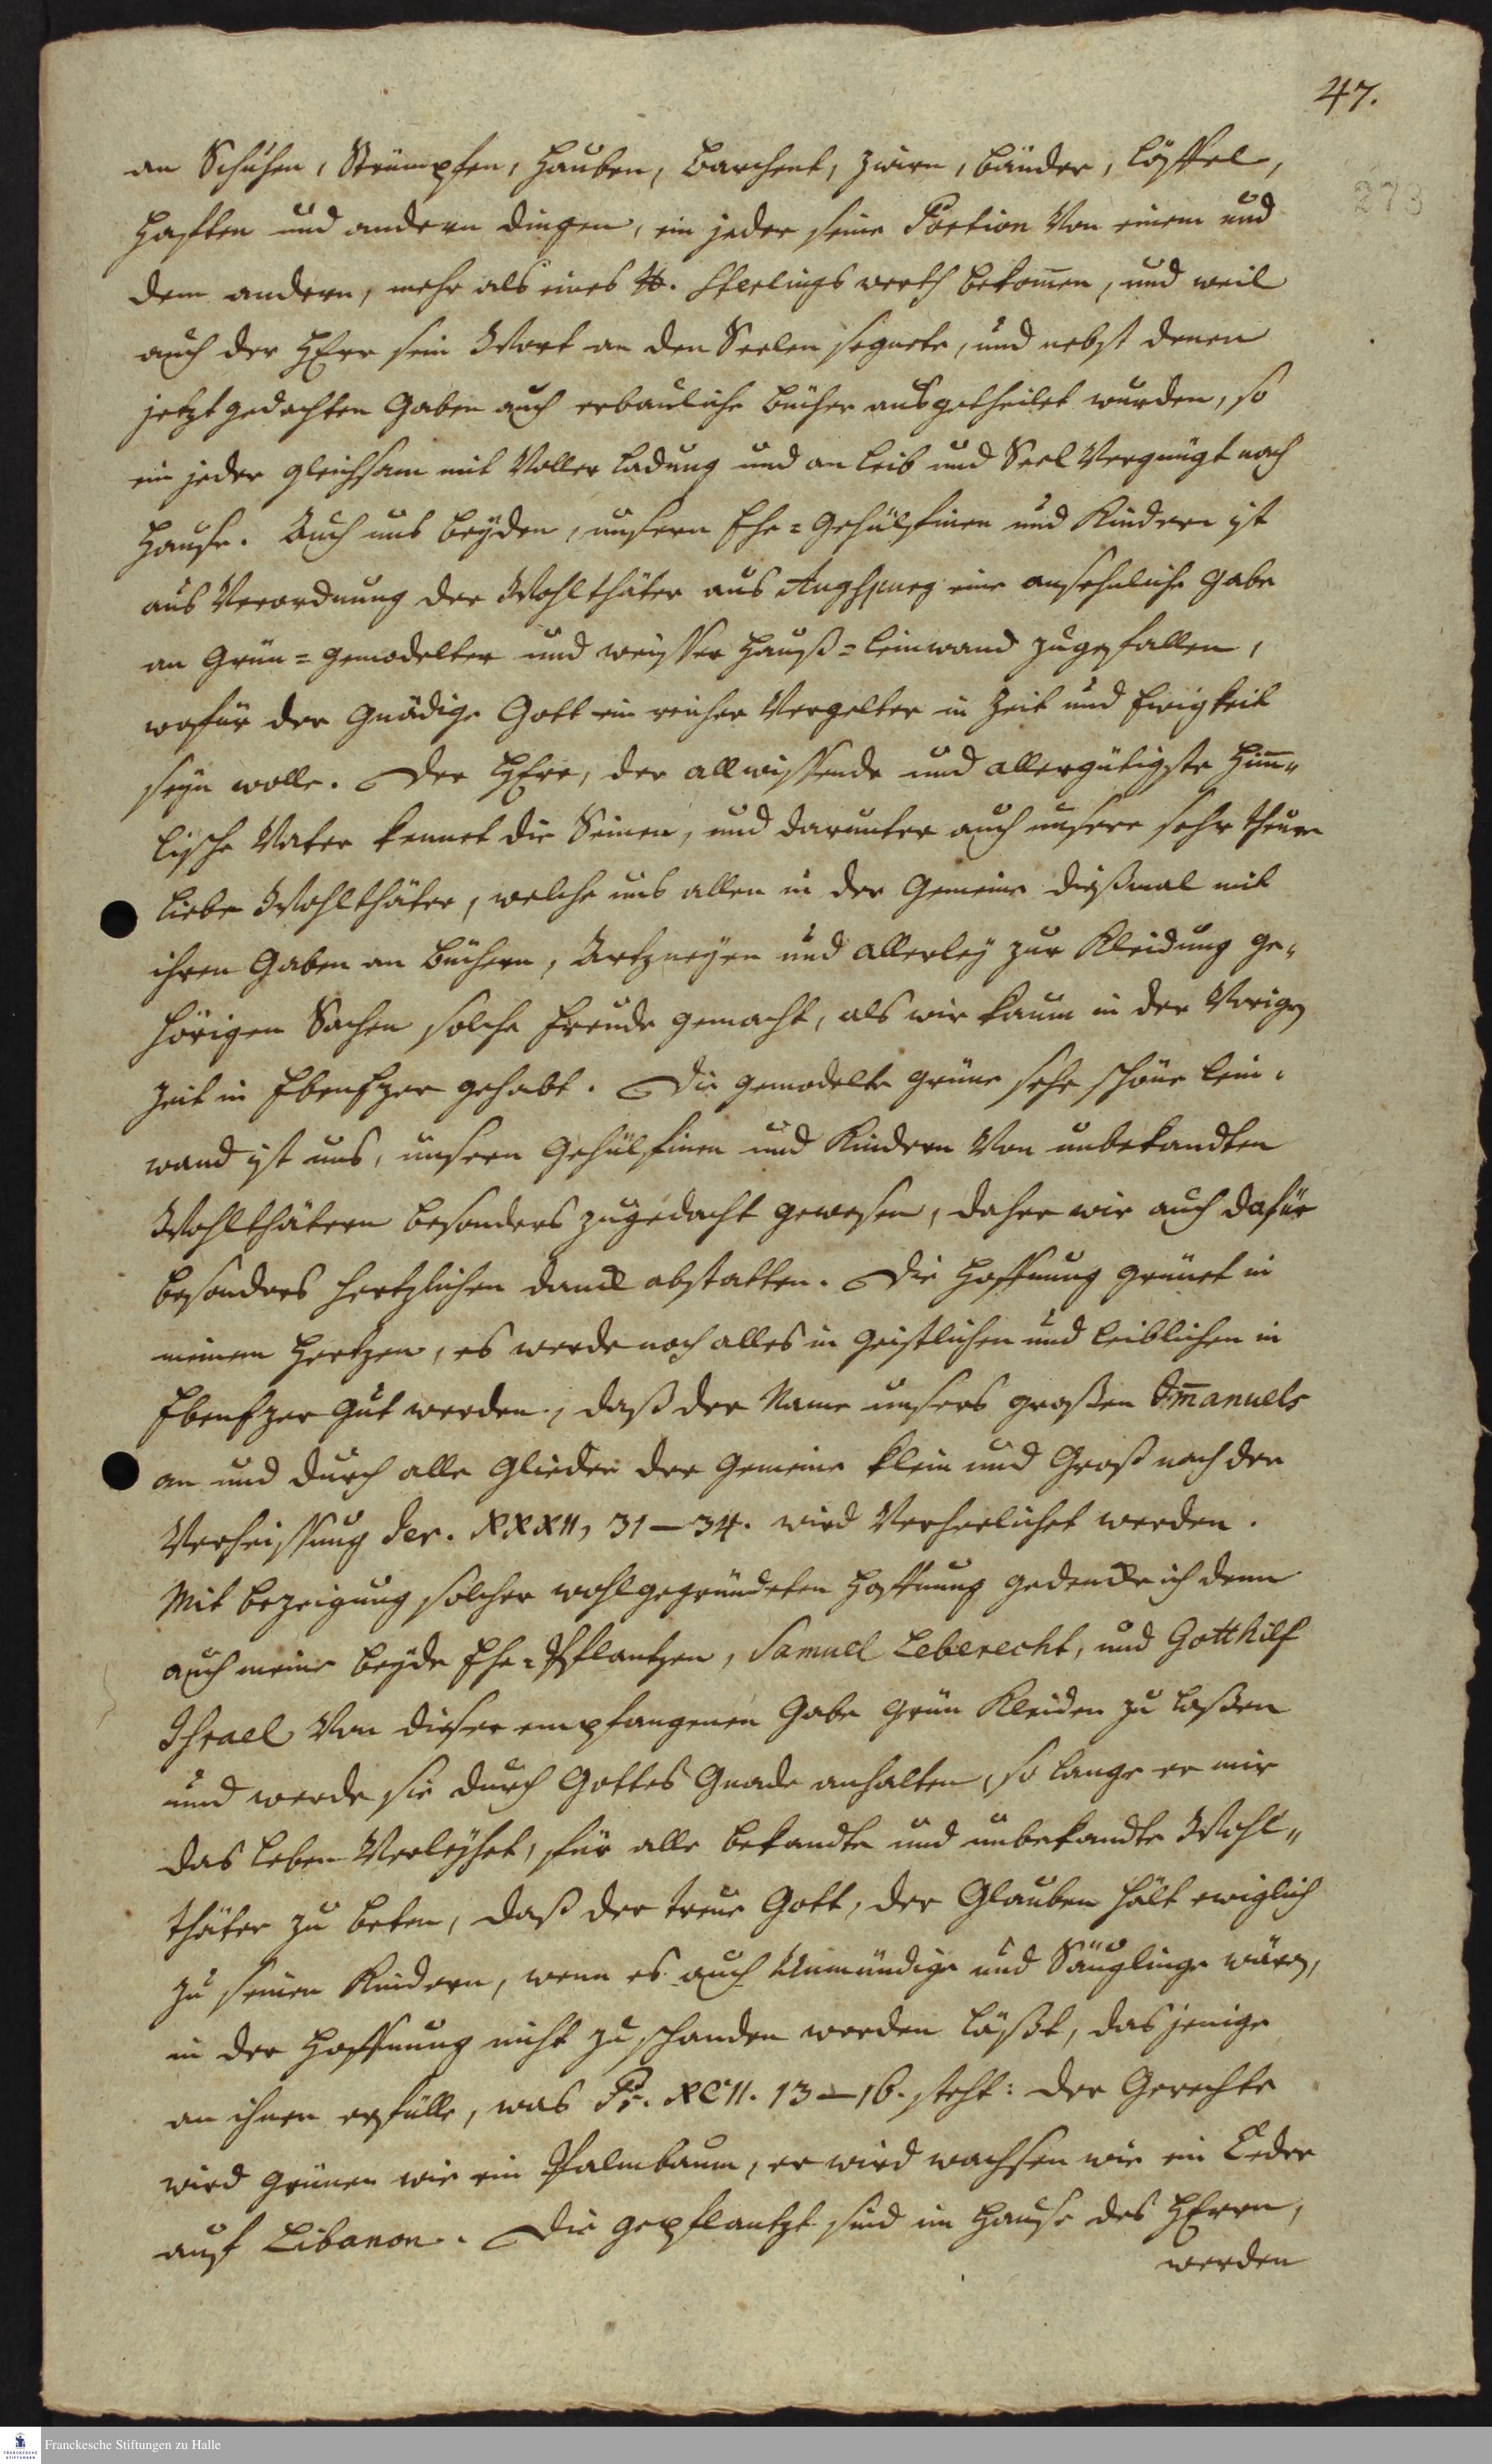 47.
273
an Schuhen, Strümpfen, Hauben, Barchent, Zwirn, Bänder, Löffel,
Hafften und andern Dingen, ein jeder seine Portion von einem und
dem andern, mehr als eines ℔. Sterlings werth bekom̅en, und weil
auch der HErr sein Wort an den Seelen segnete, und nebst denen
jetzt gedachten Gaben auch erbauliche Bücher ausgetheilet wurden, so
ein jeder gleichsam mit voller Ladung und an Leib und Seel vergnügt nach
Hause. Auch uns beyden, unsern Ehe=Gehülfinen und Kindern ist
aus Verordnung der Wohlthäter aus Augspurg eine ansehnliche Gabe
an Grün=gemodelter und weisser Hauß=Leinwand zugefallen,
wofür der Gnädige Gott ein reicher Vergelter in Zeit und Ewigkeit
seyn wolle. Der HErr, der allwissende und allergütigste Him̅„
lische Vater kennet die Seinen, und darunter auch unsere sehr theure
liebe Wohlthäter, welche uns allen in der Gemeine dießmal mit
ihren Gaben an Büchern, Artzneyen und allerley zur Kleidung ge„
hörigen Sachen solche Freude gemacht, als wir kaum in der vorigen
Zeit in EbenEzer gehabt. Die gemodelte grüne sehr schöne Lein„
wand ist uns, unsern Gehülfinen und Kindern von unbekandten
Wohlthätern besonders zugedacht gewesen, daher wir auch dafür
besonders hertzlichen Danck abstatten. Die Hoffnung grünet in
meinem Hertzen, es werde noch alles in geistlichen und leiblichen in
EbenEzer gut werden, daß der Name unsers großen Im̅anuels
an und durch alle Glieder der Gemeine klein und Groß nach der
Verheissung Jer. XXXII, 31–34. wird verherlichet werden.
Mit bezeigung solcher wohlgegründeten Hoffnung gedencke ich denn
auch meine beyde Ehe=Pflantzen, Samuel Leberecht, und Gotthilf
Israel von dieser empfangenen Gabe Grün Kleiden zu laßen
und werde sie durch Gottes Gnade anhalten, so lange er mir
das Leben verleyhet, für alle bekandte und unbekandte Wohl„
thäter zu beten, daß der treue Gott, der Glauben hält ewiglich
zu seinen Kindern, wenn es auch Unmündige und Säuglinge wären,
in der Hoffnung nicht zu schanden werden läßt, dasjenige
an ihnen erfülle, was Ps. XCII. 13–16. steht: Der Gerechte
wird grünen wie ein Palmbaum, er wird wachsen wie ein Ceder
auf Libanon. Die gepflantzt sind im Hause des HErrn,
werden
FRANCKESCHE STIFTUNGEN
Franckesche Stiftungen zu Halle